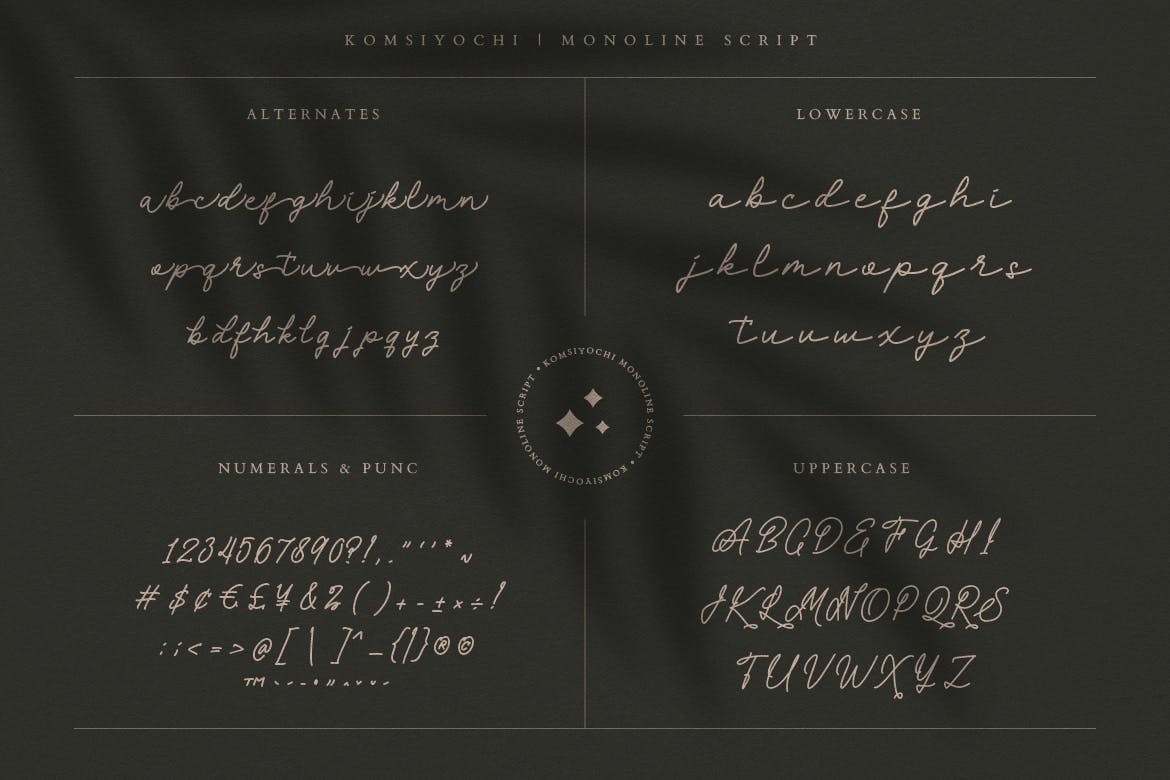 KOMSIYOCHI | MONOLINE SCRIPT
ALTERNATES
abcdefghijklmn
opqrstuvwxyz
bdfhklgjpqyz
LOWERCASE
abcdefghi
jklmnopqrs
tuvwxyz
KOMSIYOCHI MONOLINE SCRIPT • KOMSIYOCHI MONOLINE SCRIPT •
NUMERALS & PUNC
1234567890?!,."''*~
#$¢€£¥&()+-±×÷!
:;<=>@[\]^_{|}®©
TM
UPPERCASE
ABCDEFGHI
JKLMNOPQRS
TUVWXYZ